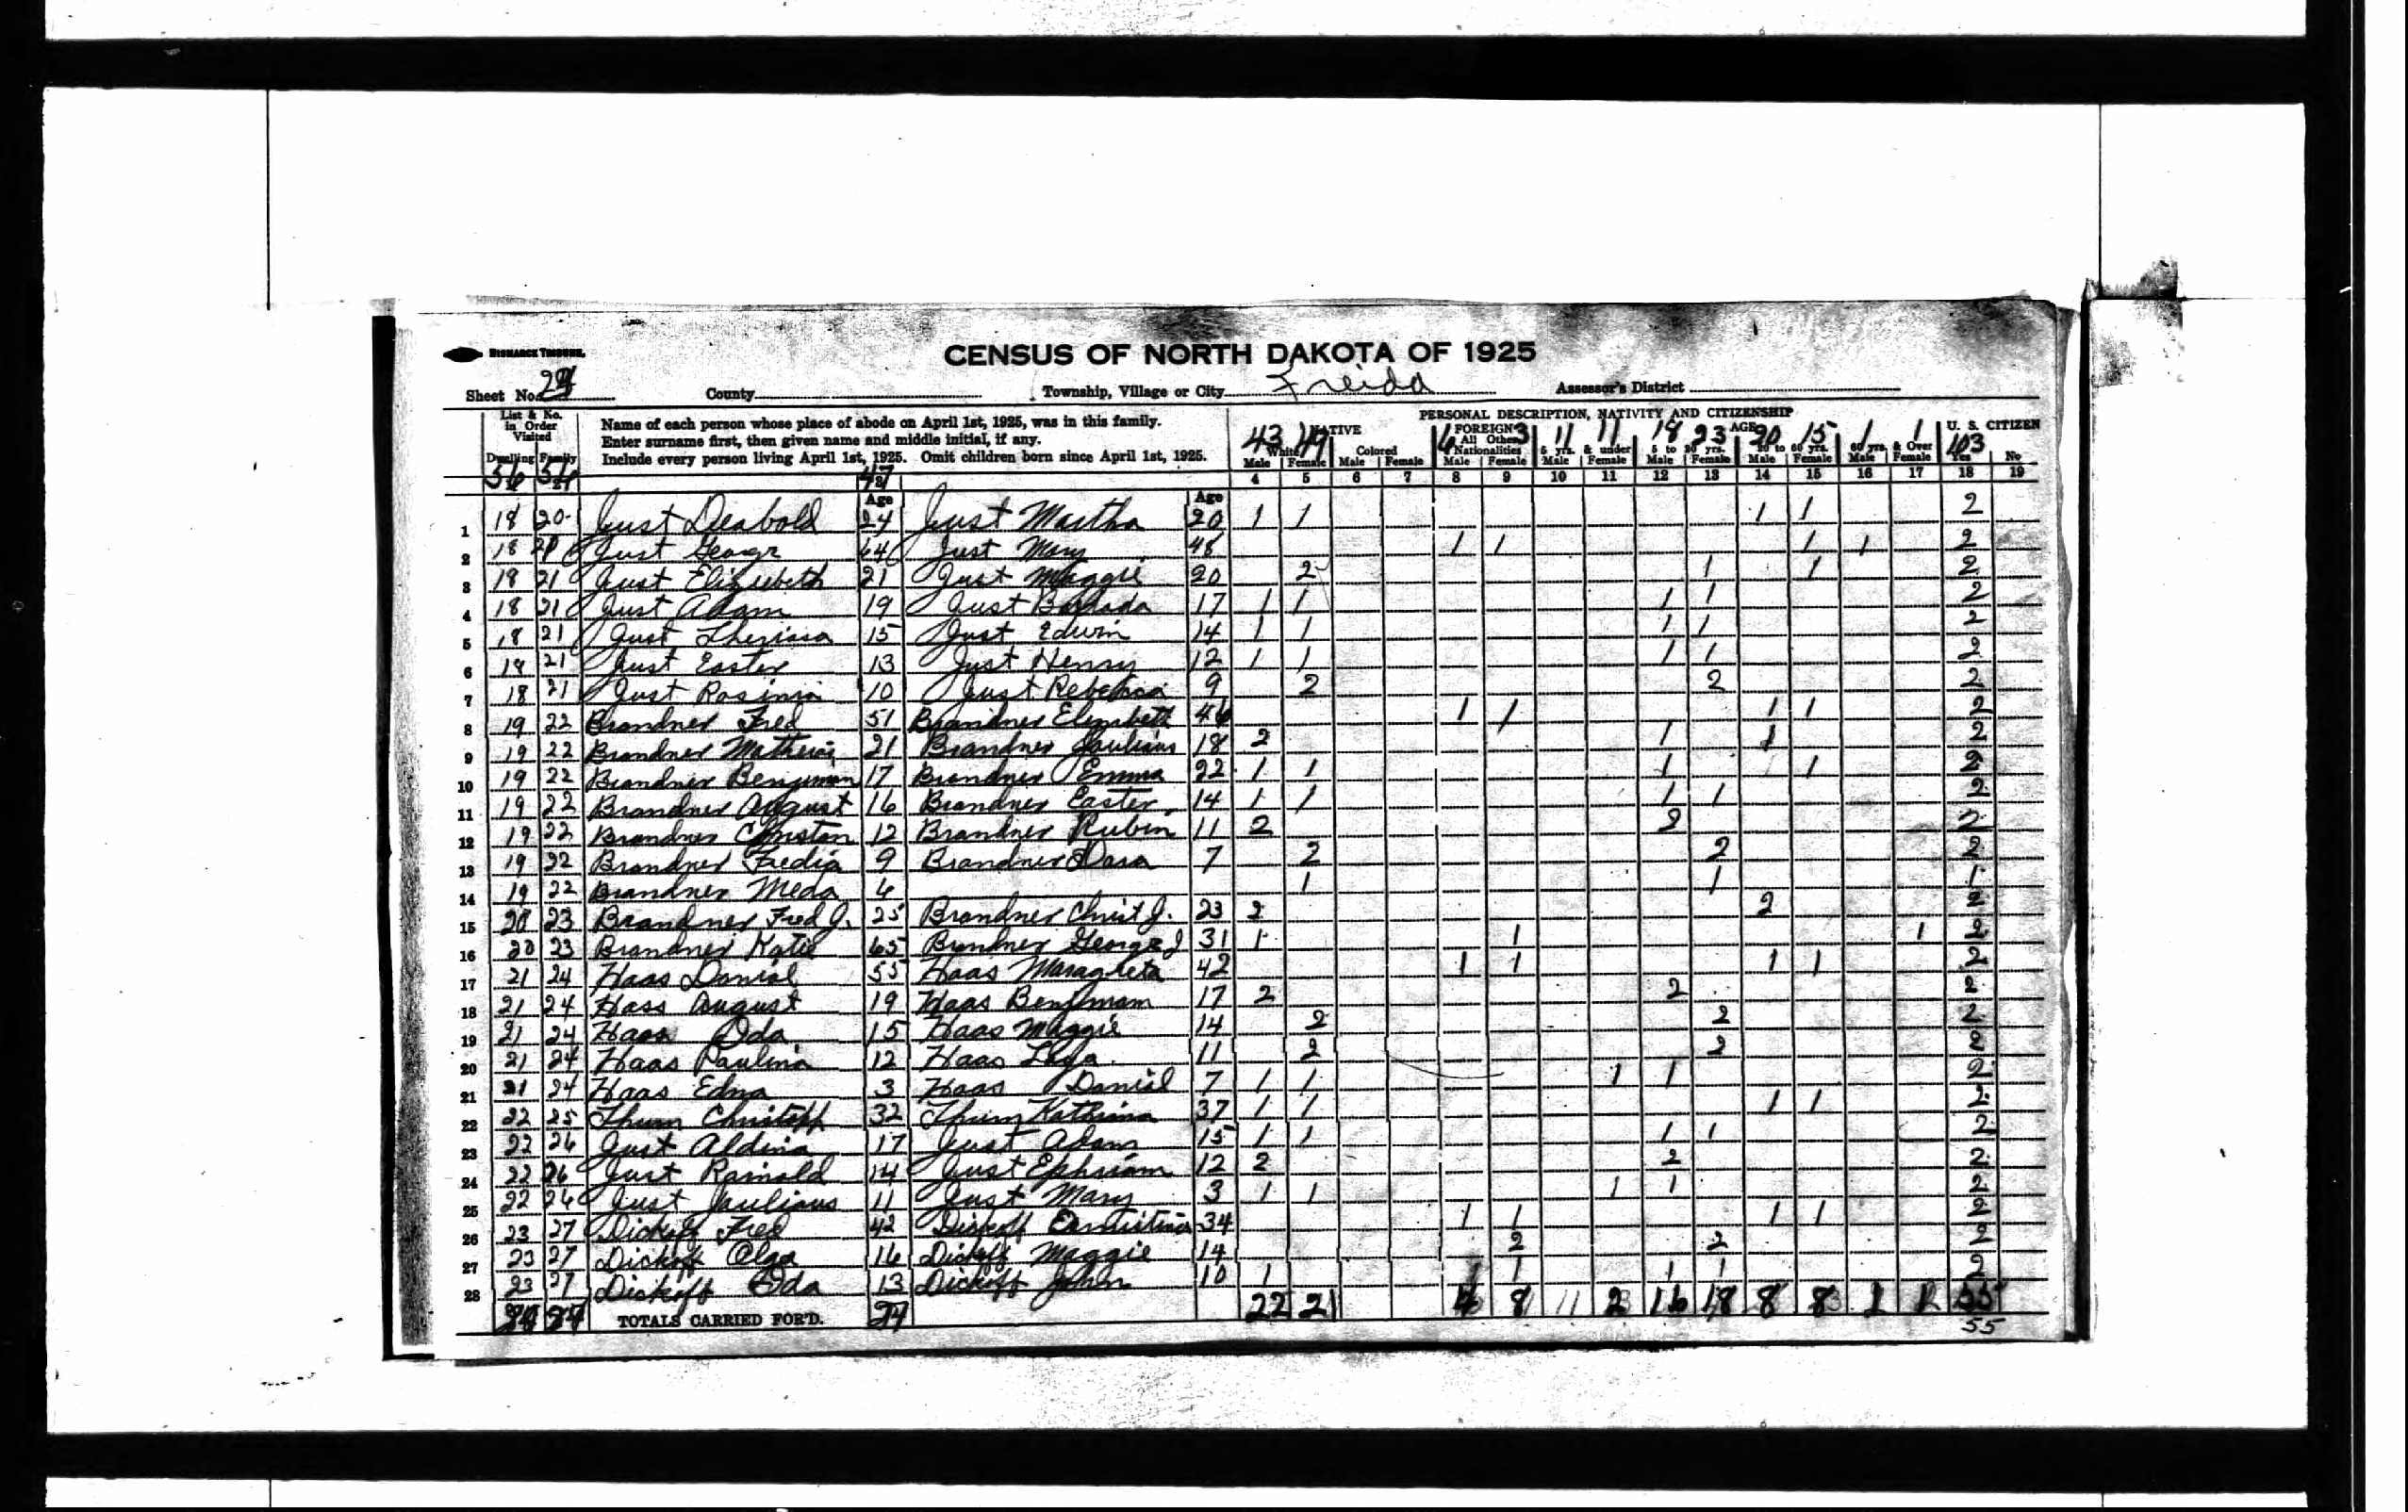 BISMARCK TRIBUNE.
CENSUS OF NORTH DAKOTA OF 1925
Sheet No. County Township, Village or City Freida Assessor's District
List & No. in Order Visited
Dwelling Family
Name of each person whose place of abode on April 1st, 1925, was in this family.
Enter surname first, then given name and middle initial, if any.
Include every person living April 1st, 1925. Omit children born since April 1st, 1925.
PERSONAL DESCRIPTION, NATIVITY AND CITIZENSHIP
NATIVE FOREIGN AGE U. S. CITIZEN
43 49 6 3 11 11 18 23 20 15 1 1 103
White Colored All Other Nationalities 5 yrs. & under 5 to 20 yrs. 20 to 60 yrs. 60 yrs. & Over
Male Female Male Female Male Female Male Female Male Female Male Female Male Female Yes No
4 5 6 7 8 9 10 11 12 13 14 15 16 17 18 19
Age Age
1 18 20 Just Deabold 24 Just Martha 20 1 1 1 1 2
2 18 21 Just George 64 Just Mary 48 1 1 1 1 2
3 18 21 Just Elizubeth 21 Just Maggie 20 2 1 1 2
4 18 21 Just Adam 19 Just 17 1 1 1 1 2
5 18 21 Just 15 Just Edwin 14 1 1 1 1 2
6 18 21 Just Easter 13 Just Henry 12 1 1 1 1 2
7 18 21 Just Rosinia 10 Just Rebecca 9 2 2 2
8 19 22 Brandner Fred 51 Brandner 46 1 1 1 1 2
9 19 22 Brandner 21 Brandner 18 2 1 1 2
10 19 22 Brandner Benjuman 17 Brandner Emma 22 1 1 1 1 2
11 19 22 Brandner August 16 Brandner Easter 14 1 1 1 1 2
12 19 22 Brandner 12 Brandner Rubin 11 2 2 2
13 19 22 Brandner Fredia 9 Brandner 7 2 2 2
14 19 22 Brandner Meda 6 1 1 1
15 20 23 Brandner Fred J. 25 Brandner Christ J. 23 2 2 2
16 20 23 Brandner Katie 65 Brandner George J 31 1 1 1 2
17 21 24 Haas Danial 55 Haas Maragreta 42 1 1 1 1 2
18 21 24 Hass August 19 Haas Benjmam 17 2 2 2
19 21 24 Haas Ida 15 Haas Maggie 14 2 2 2
20 21 24 Haas Paulina 12 Haas 11 2 2 2
21 21 24 Haas Edna 3 Haas Danial 7 1 1 1 1 2
22 22 25 Thurn 32 Thurn Kathrina 37 1 1 1 1 2
23 22 26 Just Aldina 17 Just Adam 15 1 1 1 1 2
24 22 26 Just Rainold 14 Just Ephriam 12 2 2 2
25 22 26 Just Jaulious 11 Just Mary 3 1 1 1 1 2
26 23 27 Dickoff Fred 42 Dickoff 34 1 1 1 1 2
27 23 27 Dickoff Olga 16 Dickoff Maggie 14 2 2 2
28 23 27 Dickoff Ida 13 Dickoff John 10 1 1 1 1 2
TOTALS CARRIED FOR'D. 22 21 8 2 16 18 8 8 1 1 55
55